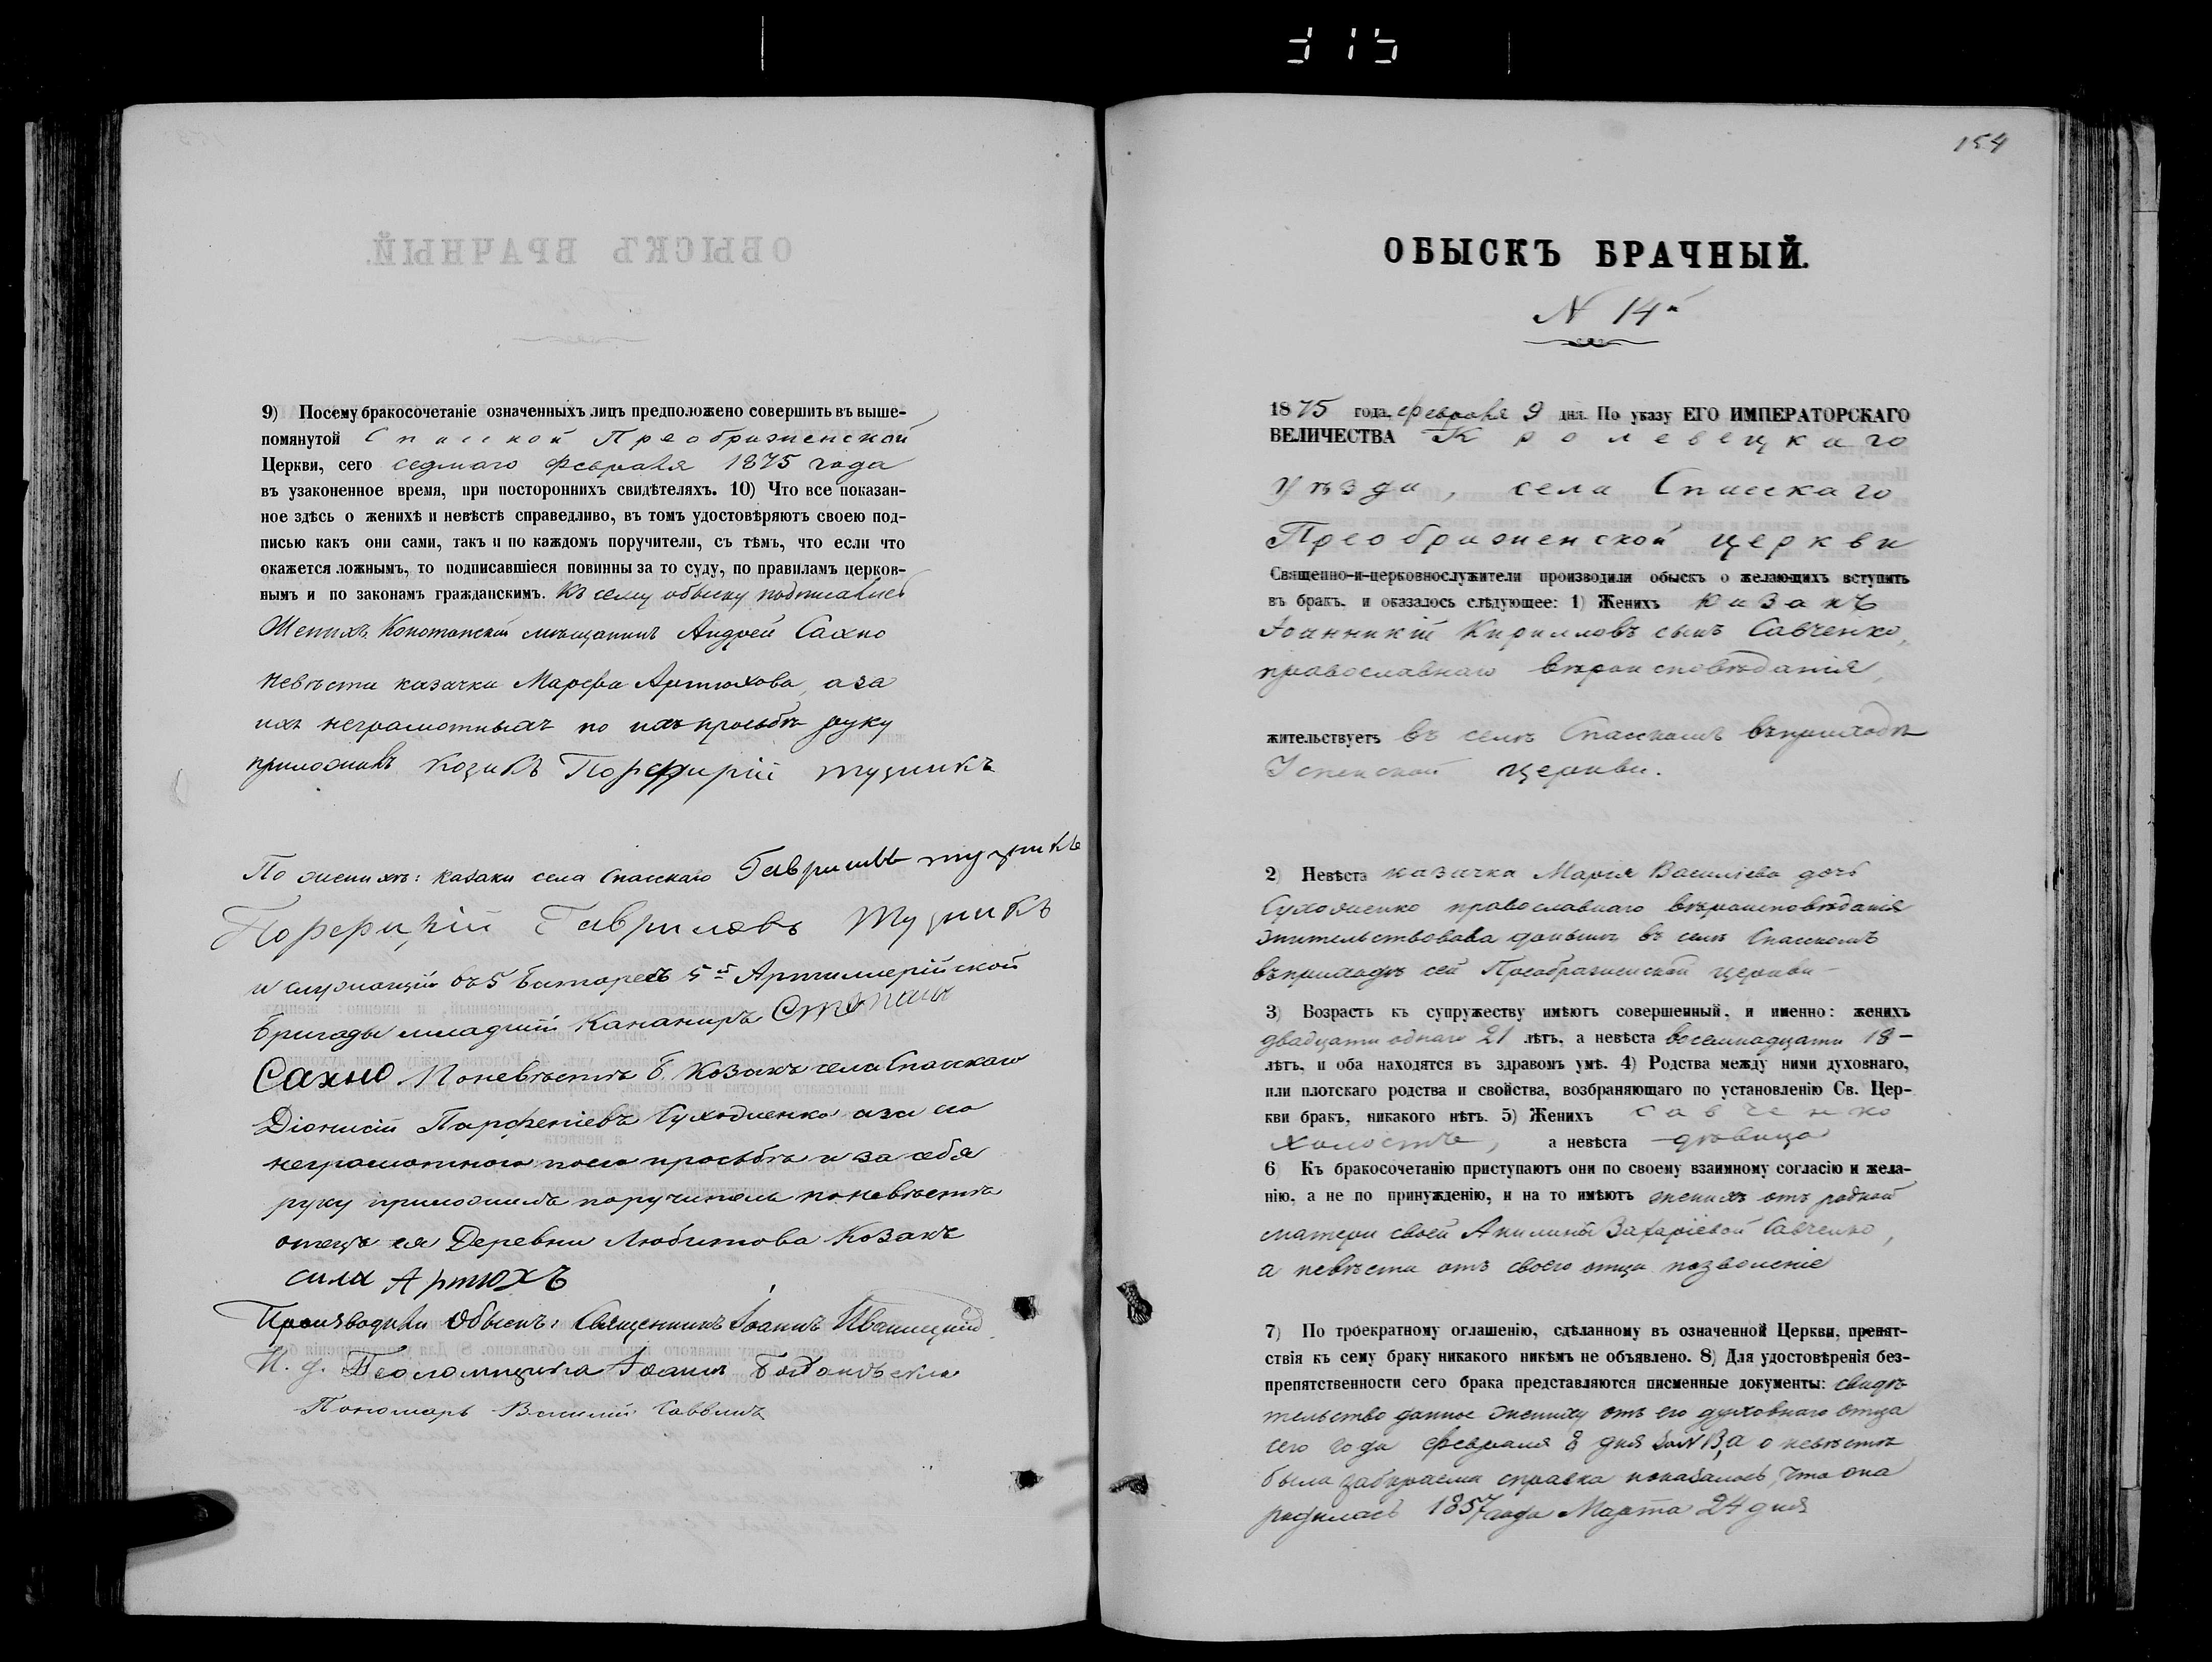 315
154
9) Посему бракосочетаніе означенныхъ лицъ предположено совершить въ выше-
помянутой Спасской Преображенской
Церкви, сего седмаго февраля 1875 года
въ узаконенное время, при постороннихъ свидѣтеляхъ. 10) Что все показан-
ное здѣсь о женихѣ и невѣстѣ справедливо, въ томъ удостовѣряютъ своею под-
писью какъ они сами, такъ и по каждомъ поручители, съ тѣмъ, что если что
окажется ложнымъ, то подписавшіеся повинны за то суду, по правиламъ церков-
нымъ и по законамъ гражданскимъ. Къ сему обыску подписались
Женихъ Конотопскій мѣщанинъ Андрей Сахно
невѣста казачка Марфа Артюхова, а за
ихъ неграмотныхъ по ихъ просьбѣ руку
приложилъ козакъ Порфирій
По женихѣ: казаки села Спасскаго Гаврилъ
Порфирій Гавриловъ
и служащій въ 5 батареѣ 5й Артиллерійской
бригады младшій Кананиръ Степанъ
Сахно По невѣстѣ Козакъ села Спасскаго
Діонисій Парфеніевъ Суходиенко а за его
неграмотного по его просьбѣ и за себя
руку приложилъ поручитель по невѣстѣ
отецъ ея Деревни Любитова Козакъ
сила Артюхъ
Производили Обыскъ: Священникъ Іоаннъ Иваницкій
И. д. Псаломщика Іоаннъ
Пономарь Василій Саввичъ
ОБЫСКЪ БРАЧНЫЙ.
N 14й
1875 года, февраля 9 дня. По указу ЕГО ИМПЕРАТОРСКАГО
ВЕЛИЧЕСТВА Кролевецкаго
уѣзда, села Спасскаго
Преображенской церкви
Священно-и-церковнослужители производили обыскъ о желающихъ вступить
въ бракъ, и оказалось слѣдующее: 1) Женихъ казакъ
Іоанникій Кирилловъ сынъ Савченко,
православнаго вѣроисповѣданія,
жительствуетъ въ селѣ Спасскомъ въ приходѣ
Успенской церкви.
2) Невѣста казачка Марія Василіева дочь
православнаго вѣроисповѣданія
жительствовала донынѣ въ селѣ Спасскомъ
въ приходѣ сей Преображенской церкви —
3) Возрастъ къ супружеству имѣютъ совершенный, и именно: женихъ
двадцати однаго 21 лѣтъ, а невѣста восемнадцати 18 –
лѣтъ, и оба находятся въ здравомъ умѣ. 4) Родства между ними духовнаго,
или плотскаго родства и свойства, возбраняющаго по установленію Св. Цер-
кви бракъ, никакого нѣтъ. 5) Женихъ Савченко
холостъ, а невѣста дѣвица
6) Къ бракосочетанію приступаютъ они по своему взаимному согласію и жела-
нію, а не по принужденію, и на то имѣютъ женихъ отъ родной
матери своей Акилины Захаріевой Савченко,
а невѣста отъ своего отца позволеніе
7) По троекратному оглашенію, сдѣланному въ означенной Церкви, препят-
ствія къ сему браку никакого никѣмъ не объявлено. 8) Для удостовѣренія без-
препятственности сего брака представляются писменные документы: свидѣ
тельство данное жениху отъ его духовнаго отца
сего года февраля 8 дня о невѣстѣ
была забираема справка показалось, что она
родилась 1857 года Марта 24 дня